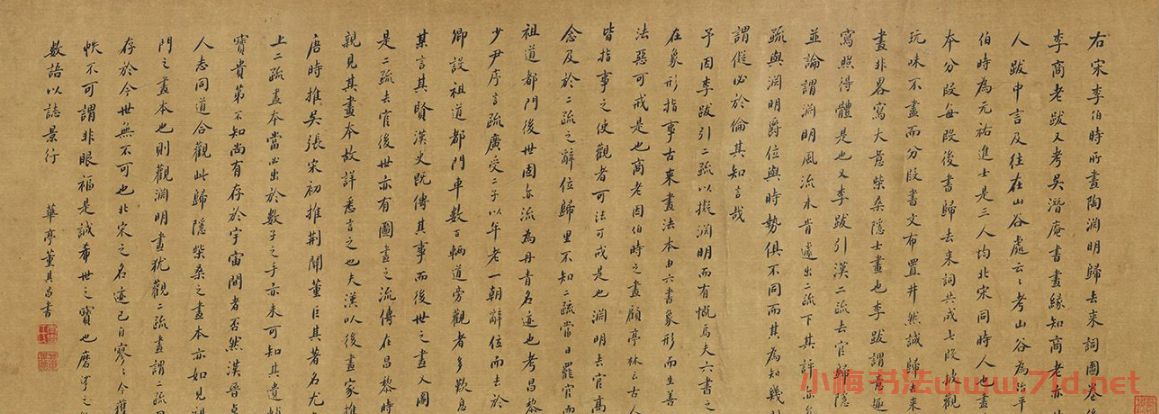 右宋李伯時所畫陶淵明歸去來詞圖卷
李商老跋又考吳潛庵書畫緣知商老
人跋中言及往在山谷處云云考山谷為
伯時為元祐進士是三人均北宋同時人也畫
本分段每段後書歸去來詞共成七段披觀
玩味不盡而分段書文布置井然誠歸來
畫非畧寫大意柴桑隱士畫也李跋謂意
寫照得體是也又李跋引漢二疏去官歸隱
並論謂淵明風流未肯遽出二疏下其評
疏與淵明爵位與時勢俱不同而其為知幾
謂儗必於倫其知言哉
予因李跋引二疏以擬淵明而有慨焉夫六書之
在象形指事古來畫法本由六書象形而生善
法惡可戒是也商老因伯時之畫顧亭林云古人
皆指事之使觀者可法可戒是也淵明去官高
念及於二疏之辭位歸里不知二疏當日罷官
祖道都門後世圖亦流為丹青名迹也考昌黎
少尹序言疏廣受二子以年老一朝辭位而去於
卿設祖道都門車數百輛道旁觀者多歎息
其言其賢漢史既傳其事而後世之畫人圖
是二疏去官後世亦有圖畫之流傳在昌黎時
親見其畫本故詳悉言之也夫漢以後畫家推
唐時推吳張宋初推荊關董巨其著名尤
上二疏畫本當必出於數子之手亦未可知其遺
寶貴第不知尚有存於宇宙間者否然漢晉
人志同道合觀此歸隱柴桑之畫本亦如見
門之畫本也則觀淵明畫猶觀二疏畫謂二疏
存於今世無不可也北宋之名迹已自寥寥今獲
帙不可謂非眼福是誠希世之寶也
數語以誌景行 華亭董其昌書
小梅书法www.71d.net